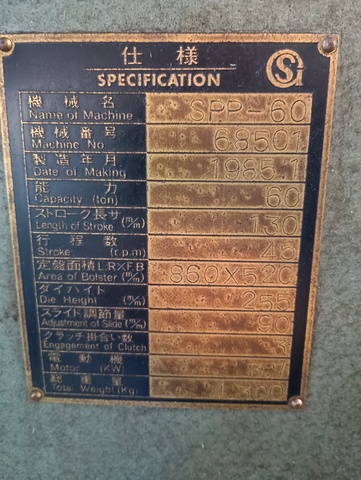 仕様
SPECIFICATION
機械名 SPP-60
Name of Machine
機械番号 68501
Machine No.
製造年月 1985.1
Date of Making
能力 60
Capacity (ton)
ストローク長サ (m/m) 130
Length of Stroke
行程数 45
Stroke (r.p.m)
定盤面積L.RXF.B 860X520
Area of Bolster (m/m)
ダイハイト (m/m) 255
Die Height
スライド調節量 90
Adjustment of Slide (m/m)
クラッチ掛合い数 3
Engagement of Clutch
電動機
Motor (KW)
総重量
Total Weight (Kg)